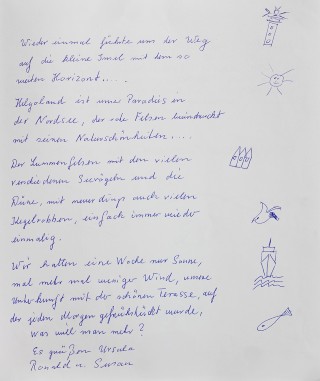 Wieder einmal führte uns der Weg
auf die kleine Insel mit dem so
weiten Horizont....
Helgoland ist unser Paradies in
der Nordsee, der rote Felsen beeindruckt
mit seinen Naturschönheiten, ...
Der Lummenfelsen mit den vielen
verschiedenen Seevögeln und die
Düne, mit neuerdings auch vielen
Kegelrobben, einfach immer wieder
einmalig.
Wir hatten eine Woche nur Sonne,
mal mehr mal weniger Wind, unsere
Unterkunft mit der schönen Terasse, auf
der jeden Morgen gefrühstückt wurde,
was will man mehr?
Es grüßen Ursula
Ronald u. Susan